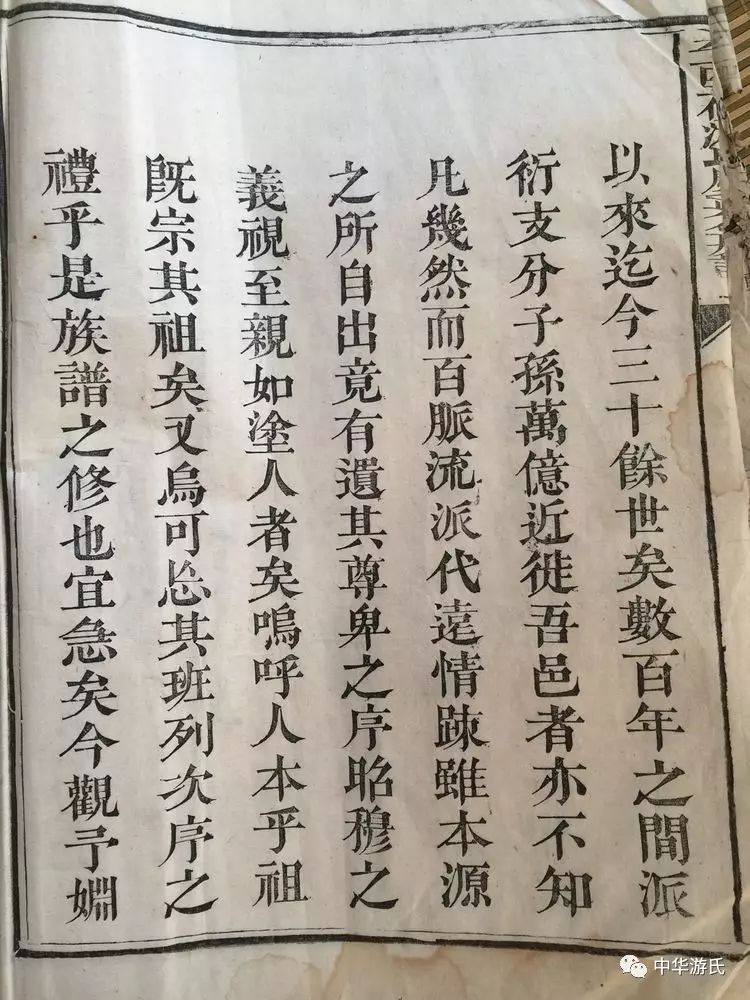 以來迄今三十餘世矣數百年之間派
衍支分子孫萬億近徙吾邑者亦不知
凡幾然而百脈流派代遠情踈雖本源
之所自出竟有遺其尊卑之序昭穆之
義視至親如塗人者矣嗚呼人本乎祖
既宗其祖矣又烏可忽其班列次序之
禮乎是族譜之修也宜急矣今觀予姻
中华游氏